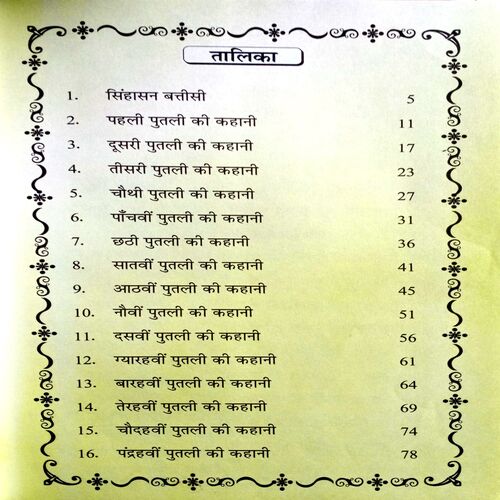 तालिका
1. सिंहासन बत्तीसी 5
2. पहली पुतली की कहानी 11
3. दूसरी पुतली की कहानी 17
4. तीसरी पुतली की कहानी 23
5. चौथी पुतली की कहानी 27
6. पाँचवीं पुतली की कहानी 31
7. छठी पुतली की कहानी 36
8. सातवीं पुतली की कहानी 41
9. आठवीं पुतली की कहानी 45
10. नौवीं पुतली की कहानी 51
11. दसवीं पुतली की कहानी 56
12. ग्यारहवीं पुतली की कहानी 61
13. बारहवीं पुतली की कहानी 64
14. तेरहवीं पुतली की कहानी 69
15. चौदहवीं पुतली की कहानी 74
16. पंद्रहवीं पुतली की कहानी 78